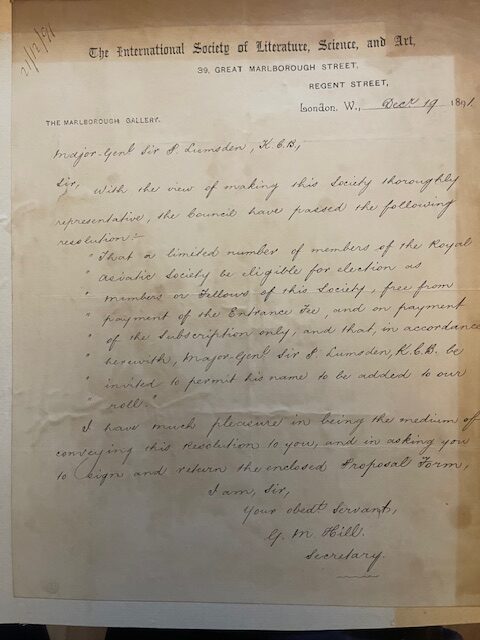 21/12/91
The International Society of Literature, Science, and Art,
39, GREAT MARLBOROUGH STREET,
REGENT STREET,
London, W., Decr. 19 1891.
THE MARLBOROUGH GALLERY.
Major-Genl. Sir P. Lumsden, K.C.B,
Sir,
With the view of making this Society thoroughly
representative, the Council have passed the following
resolution:-
"That a limited number of members of the Royal
" Asiatic Society be eligible for election as
" Members or Fellows of this Society, free from
" payment of the Entrance Fee, and on payment
" of the Subscription only, and that, in accordance
" herewith, Major-Genl. Sir P. Lumsden, K.C.B. be
" invited to permit his name to be added to our
" roll."
I have much pleasure in being the medium of
conveying this Resolution to you, and in asking you
to sign and return the enclosed Proposal Form,
I am, Sir,
Your obedt. Servant,
G. M. Hill.
Secretary.